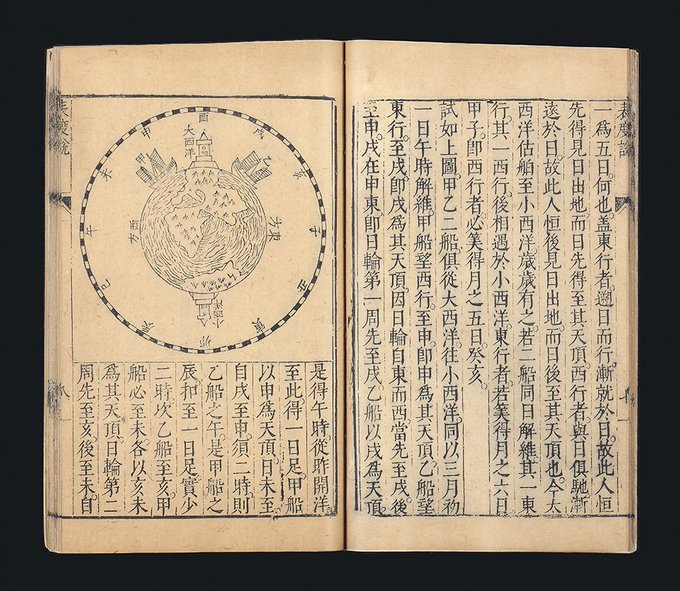 表度說
一爲五日何也蓋東行者遡日而行漸就於日故此人恒
先得見日出地而日先得至其天頂西行者與日俱馳漸
遠於日故此人恒後見日出地而日後至其天頂也今大
西洋估舶至小西洋歲歲有之若二船同日解維其一東
行其一西行後相遇於小西洋東行者若筭得月之六日
甲子卽西行者必筭得月之五日癸亥
試如上圖甲乙二船俱從大西洋往小西洋同以三月初
一日午時解維甲船望西行至申卽申爲其天頂乙船望
東行至戌卽戌爲其天頂因日輪自東而西當先至戌後
至申戌在申東卽日輪第一周先至戌乙船以戌爲天頂
酉
戌
亥
子
丑
寅
卯
辰
巳
午
未
申
大西洋
乙
甲
東方
西方
小西洋
是得午時從昨開洋
至此得一日足甲船
以申爲天頂日未至
自戌至申須二時則
乙船之午是甲船之
辰扣至一日足實少
二時次乙船至亥甲
船必至未各以亥未
爲其天頂日輪第二
周先至亥後至未自
表度說
八